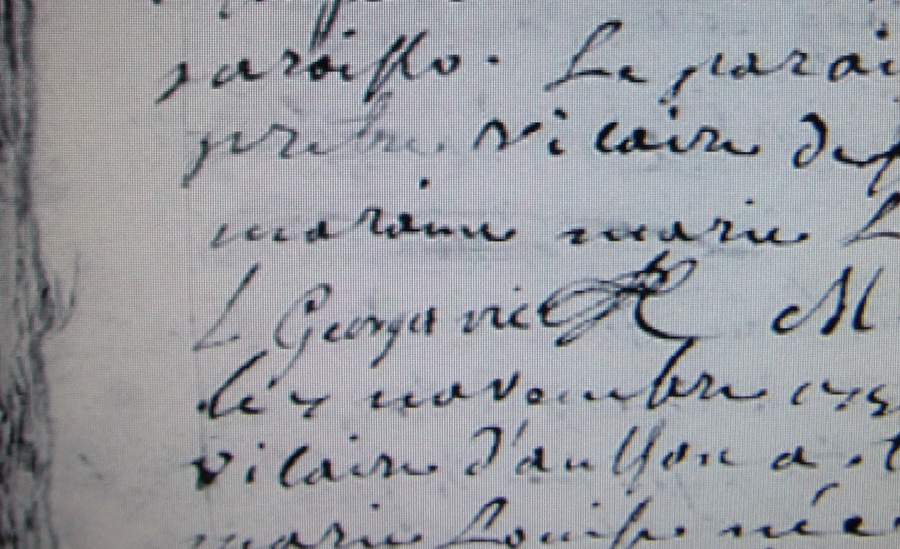 paroisse. Le parai
prêtre vicaire de
maraine marie L
L Georges vic M
le 7 novembre 175
vicaire d'aulson a
marie Louise née